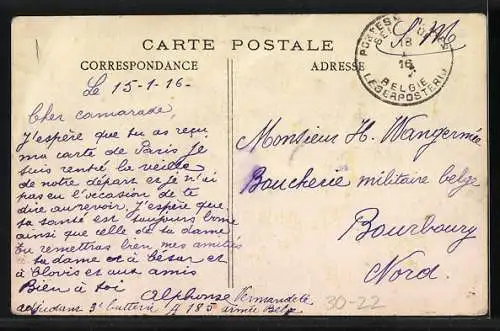 CARTE POSTALE
CORRESPONDANCE
ADRESSE
S. M.
POSTES
18
I
16
BELGIE
LEGERPOSTERIJ
Le 15-1-16-
Cher camarade,
J'espère que tu as reçu
ma carte de Paris je
suis rentré la veille
de notre départ et je n'ai
pas eu l'occasion de te
dire aurevoir. J'espère que
ta santé est toujours bonne
ainsi que celle de ta dame
Tu remettras bien mes amitiés
à ta dame et à César et
à Clovis et aux amis
Bien à toi
Alphonse Vermandele
adjudant 3e batterie A 185 armée Belge
Monsieur H. Wangermée
Boucherie militaire belge
Bourbourg
Nord.
30-22